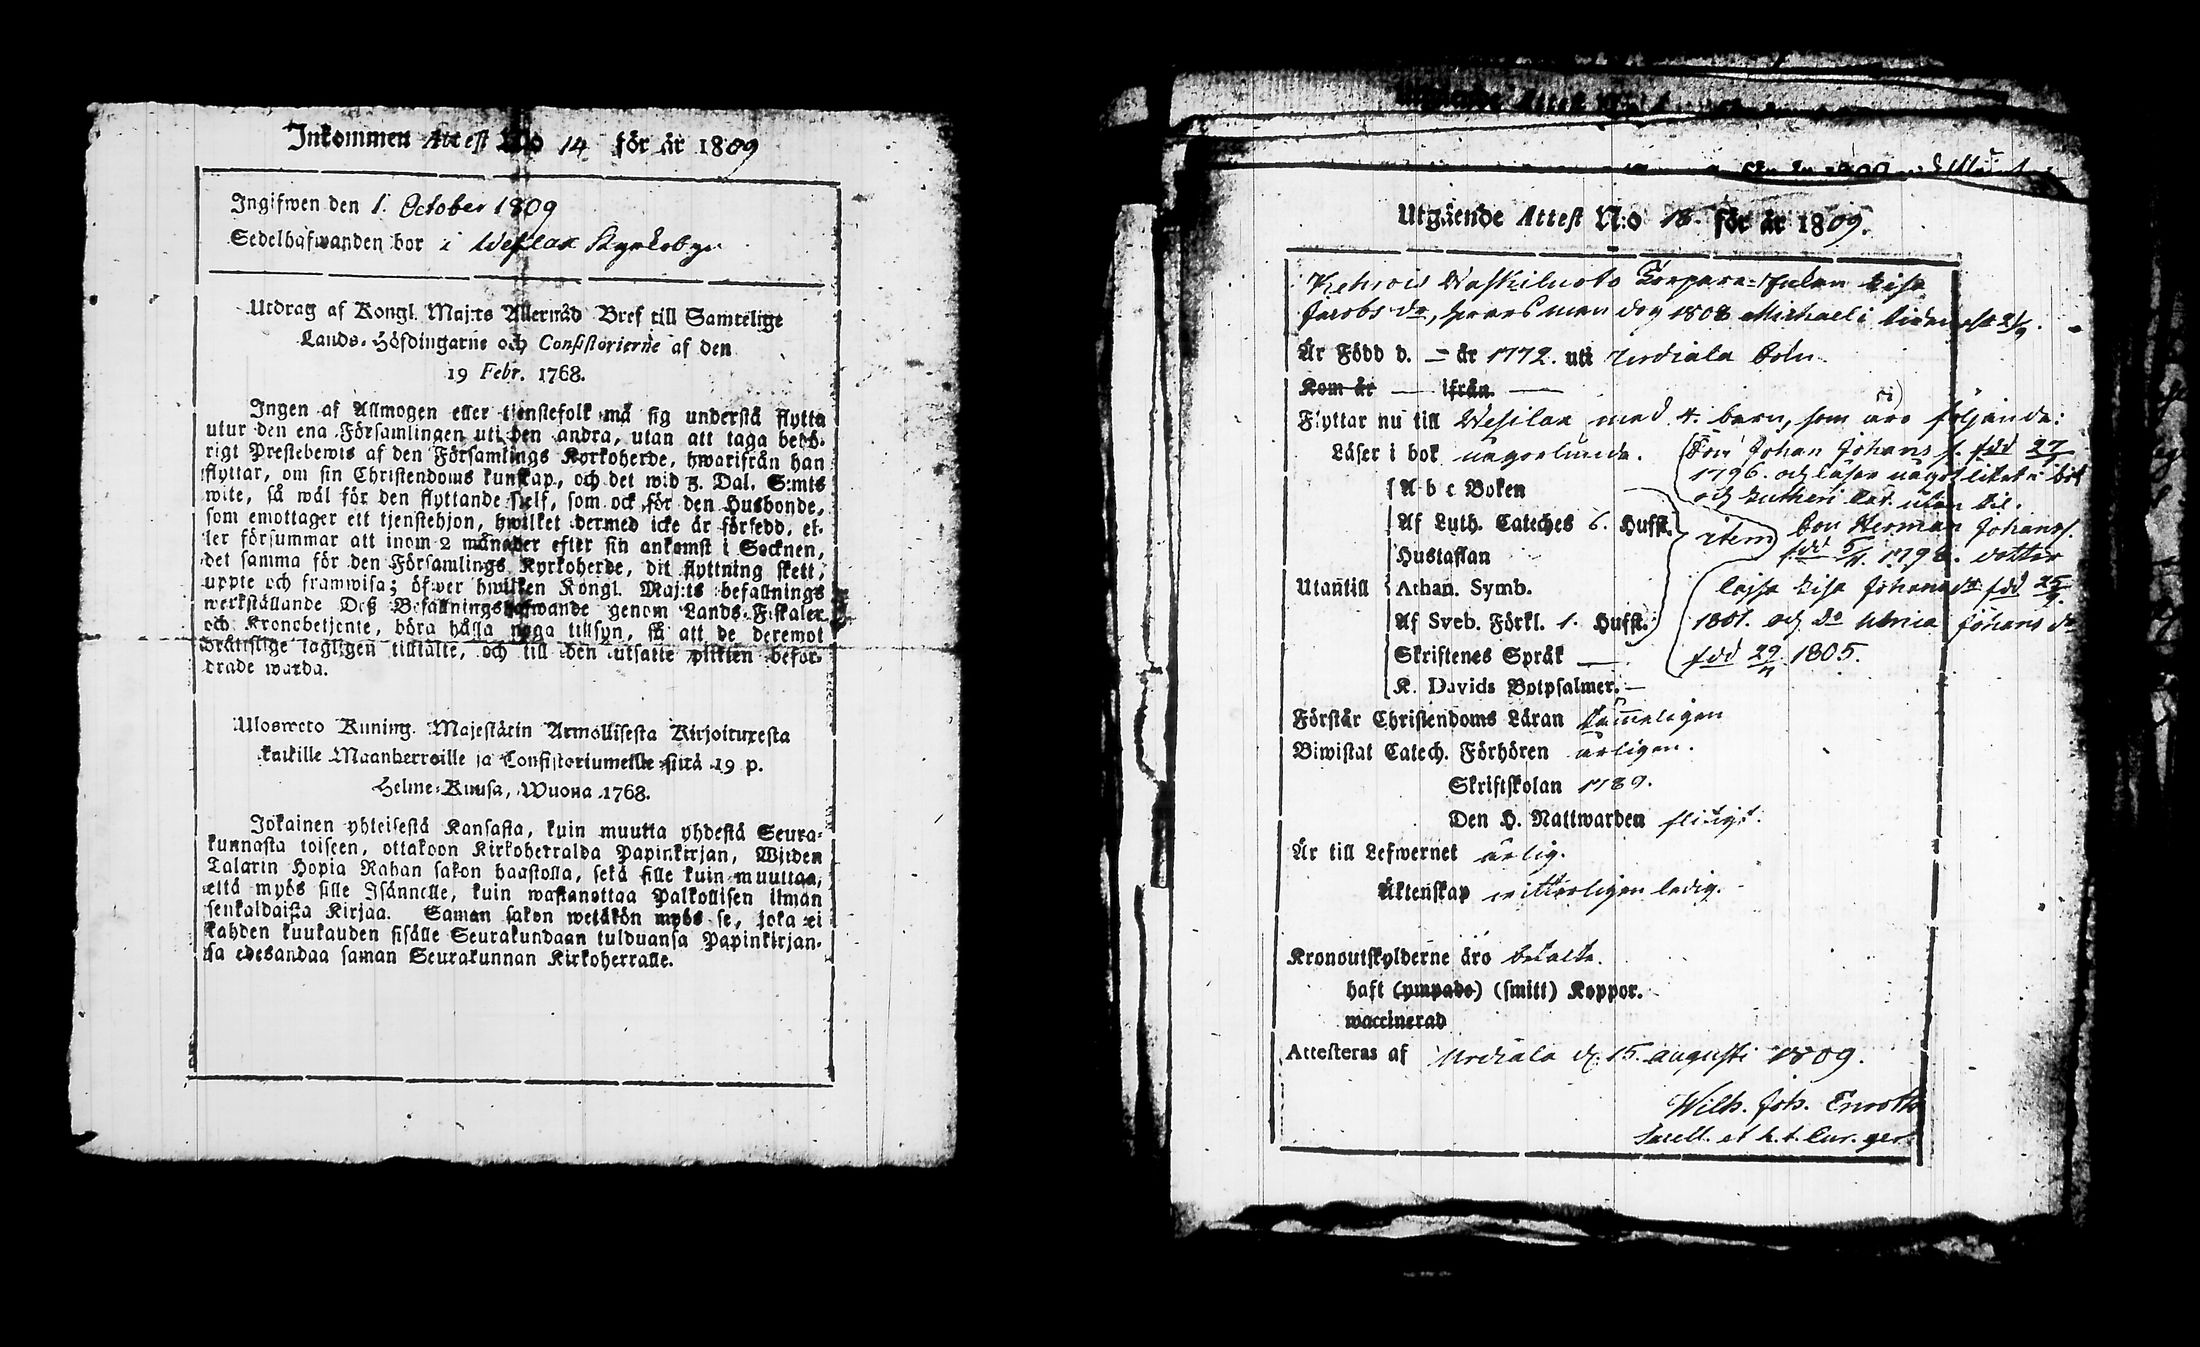 Inkommen Attest N:o 14 för år 1809
Ingifwen den 1. October 1809
Sedelhafwanden bor i Wesilax Kyrkoby
Utdrag af Kongl. Maj:ts Allernåd Bref till Samtelige
Lands-Höfdingarne och Consistorierne af den
19 Febr. 1768.
Ingen af Allmogen eller tjenstefolk må sig understå flytta
utur den ena Församlingen uti den andra, utan att taga behö-
rigt Prestebewis af den Församlings Kyrkoherde, hwarifrån han
flyttar, om sin Christendoms kunskap, och det wid 3. Dal. S:mts
wite, så wäl för den flyttande sjelf, som ock för den Husbonde,
som emottager ett tjenstehjon, hwilket dermed icke är försedd, el-
ler försummar att inom 2 månader efter sin ankomst i Socknen,
det samma för den Församlings Kyrkoherde, dit flyttning skett,
uppte och framwisa; öfwer hwilken Kongl. Maj:ts befallnings
werkställande Deß Befallningshafwande genom Lands-Fiskaler
och Kronobetjente, böra hålla noga tillsyn, så att de deremot
brättslige lagligen tilltalte, och till den utsatte plikten befor-
drade warda.
Ulosweto Kuning. Majestätin Armollisesta Kirjoituxesta
kaikille Maanherroille ja Consistoriumeille siitä 19 p.
Helme-Kuusa, Wuona 1768.
Jokainen yhteisestä Kansasta, kuin muutta yhdestä Seura-
kunnasta toiseen, ottakoon Kirkoherralda Papinkirjan, Wijden
Talarin Hopia Rahan sakon haastolla, sekä sille kuin muuttaa,
että myös sille Isännelle, kuin wastanottaa Palkollisen ilman
senkaldaista Kirjaa. Saman sakon wetäkön myös se, joka ei
kahden kuukauden sisälle Seurakundaan tulduansa Papinkirjan-
sa edesandaa saman Seurakunnan Kirkoherralle.
Utgående Attest N:o 18. för år 1809.
Kehrois Waskiluoto Torpare-Enkan Lisa
Jacobs dr, hwars man dog 1808 Michaeli tiden
Är Född d. — år 1772. uti Urdiala Sokn
Kom år — ifrån —
Flyttar nu till Wesilax med 4. barn, som äro följande:
Läser i bok någorlunda.
Son Johan Johans s. född 27
1796. och läser något litet i bok
och Lutheri Cat. utan til.
A b c Boken
Af Luth. Cateches 6. Hufst.
item Son Herman Johans s.
född 5/4 1798. dotter
Hustaflan
Utantill Athan. Symb.
Cajsa Lisa Johans dr född 25
Af Sveb. Förkl. 1. Hufst.
1801. och dr Ulrica Johans dr
Skriftenes Språk —
född 29 1805.
K. Davids Botpsalmer. —
Förstår Christendoms Läran tämeligen
Biwistat Catech. Förhören årligen.
Skriftskolan 1789.
Den H. Nattwarden flitigt.
Är till Lefwernet ärlig.
Äktenskap witterligen ledig.
Kronoutskylderne äro betalte.
haft (ympade) (smitt) Koppor.
waccinerad
Attesteras af Urdiala d. 15. augusti 1809.
Wilh. Joh. Enroth
Sacell. et h. t. Cur. ger.